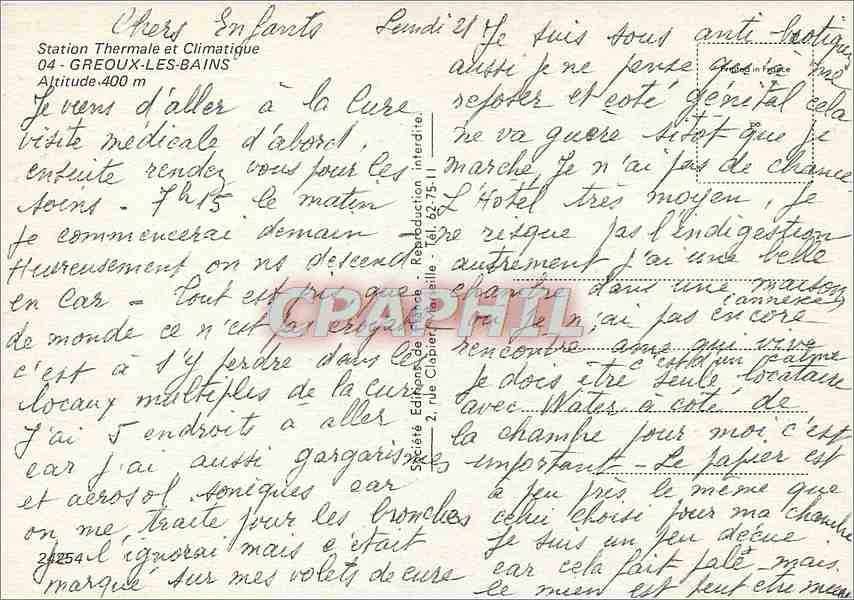 Chers Enfants Lundi 21
Station Thermale et Climatique
04 - GREOUX-LES-BAINS
Altitude 400 m
Je viens d'aller à la Cure
visite médicale d'abord,
ensuite rendez vous pour les
soins - 7h15 le matin
je commencerai demain -
Heureusement on ns descend
en Car - Tout est pris que
de monde ce n'est pas croyable
c'est à s'y perdre dans les
locaux multiples de la cure
J'ai 5 endroits à aller
car j'ai aussi gargarismes
et aerosol soniques car
on me traite pour les bronches
je l'ignorai mais c'était
marqué sur mes volets de cure
24254
Société Editions de France - Reproduction interdite.
2, rue Clapier, Marseille - Tél. 62-75-11
Printed in France
Je suis sous anti-biotiques
aussi je ne pense que à me
reposer et coté génital cela
ne va guère sitôt que je
marche, Je n'ai pas de chance
L'Hotel très moyen, je
ne risque pas l'indigestion
autrement j'ai une belle
chambre dans une maison
(annexe)
où je n'ai pas encore
rencontré ame qui vive
c'est d'un calme
je dois etre seule locataire
avec Water à coté de
la chambre pour moi c'est
important - Le papier est
à peu près le même que
celui choisi pour ma chambre
Je suis un peu déçue
car cela fait pale mais
le mien est peut etre mieux
CPAPHIL